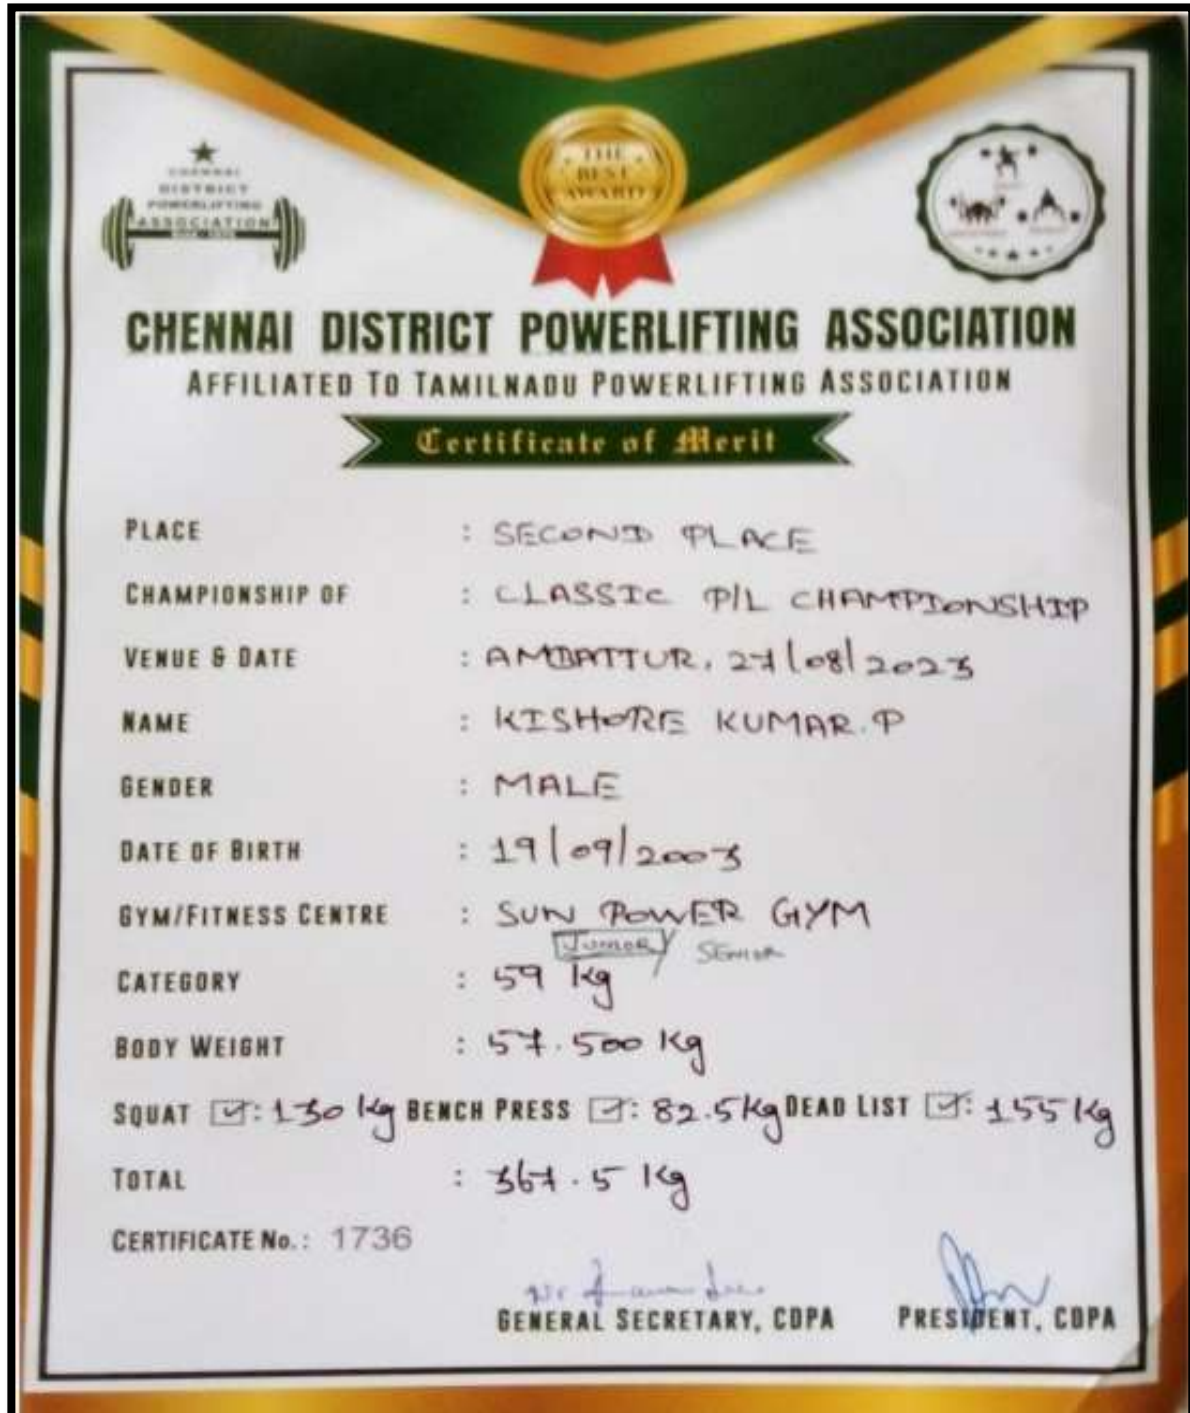 THE
BEST
AWARD
CHENNAI
DISTRICT
POWERLIFTING
ASSOCIATION
CHENNAI DISTRICT POWERLIFTING ASSOCIATION
AFFILIATED TO TAMILNADU POWERLIFTING ASSOCIATION
Certificate of Merit
PLACE : SECOND PLACE
CHAMPIONSHIP OF : CLASSIC P/L CHAMPIONSHIP
VENUE & DATE : AMBATTUR, 27/08/2023
NAME : KISHORE KUMAR.P
GENDER : MALE
DATE OF BIRTH : 19/09/2003
GYM/FITNESS CENTRE : SUN POWER GYM
JUNIOR / SENIOR
CATEGORY : 59 Kg
BODY WEIGHT : 57.500 Kg
SQUAT ☑: 130 Kg BENCH PRESS ☑: 82.5 Kg DEAD LIST ☑: 155 Kg
TOTAL : 367.5 Kg
CERTIFICATE No.: 1736
GENERAL SECRETARY, CDPA PRESIDENT, CDPA